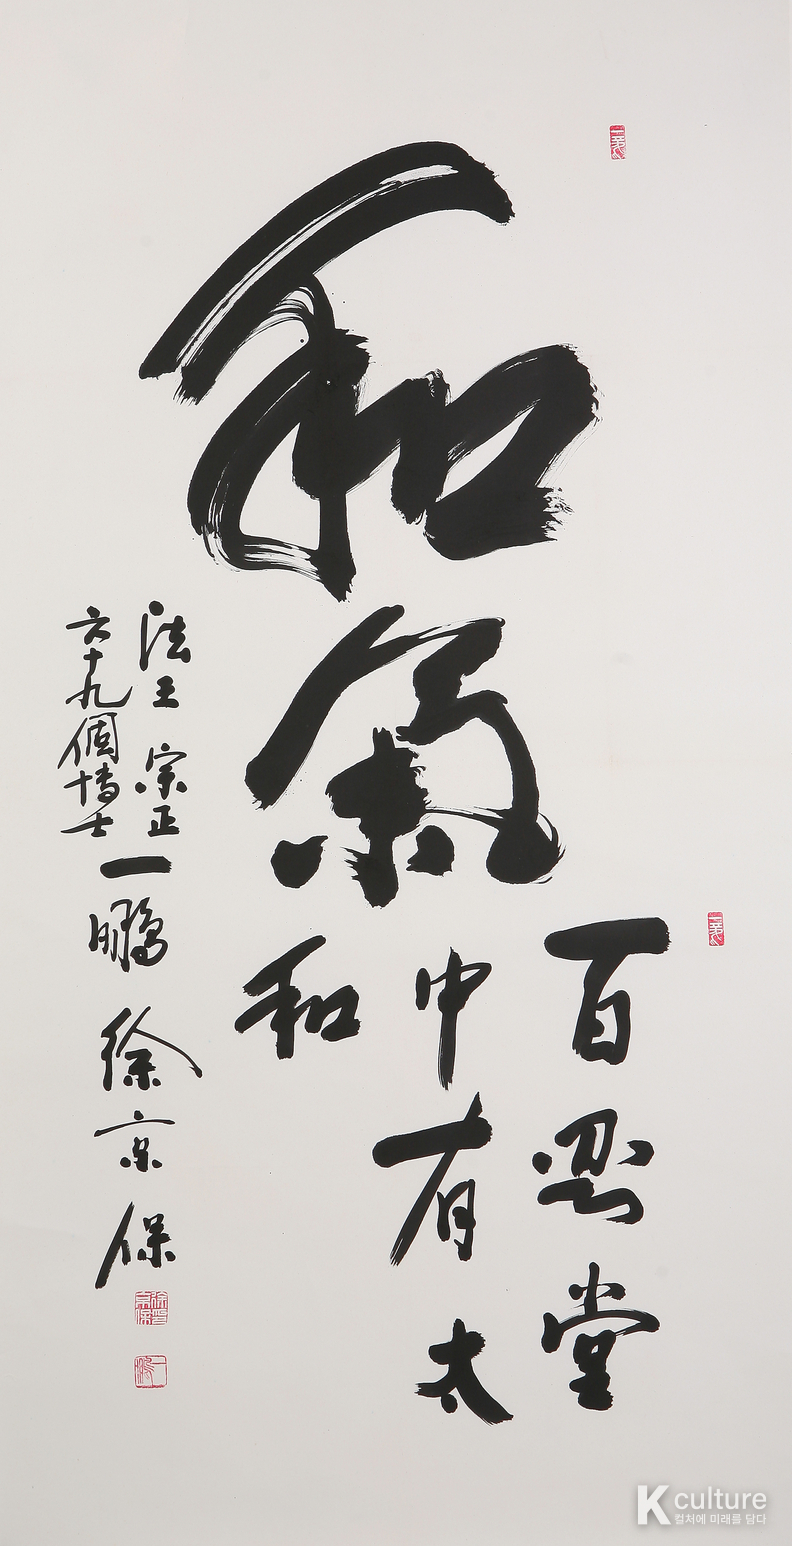 和氣
百忍堂
中有太
和
法王 宗正
六十九個博士
一鵬 徐京保
K culture
컬처에 미래를 담다